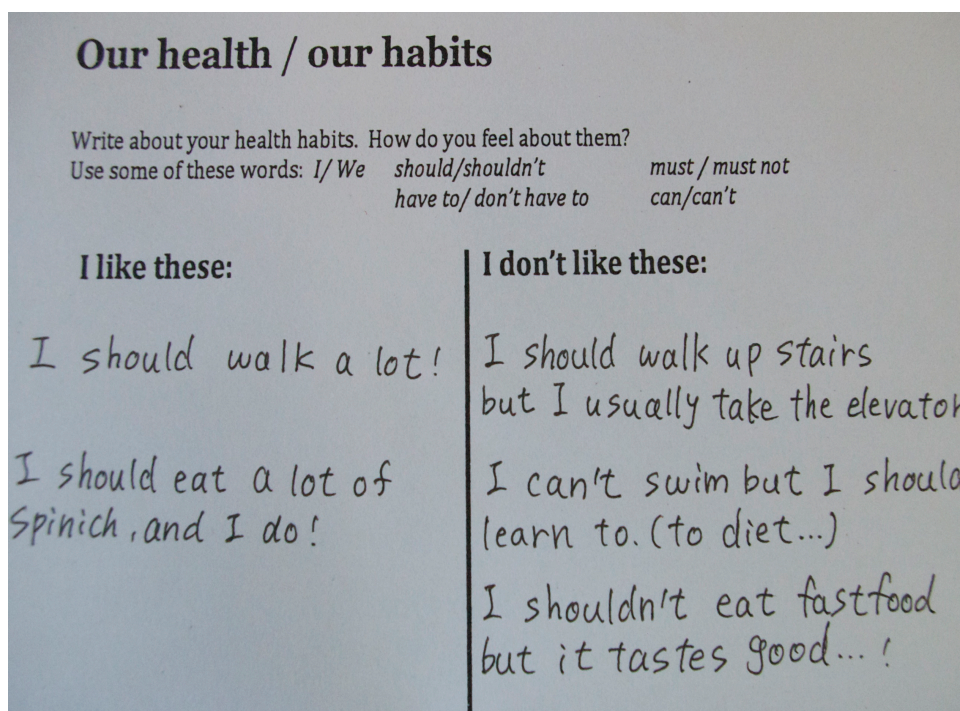 Our health / our habits
Write about your health habits. How do you feel about them?
Use some of these words: I/ We should/shouldn't must / must not
have to/ don't have to can/can't
I like these:
I should walk a lot!
I should eat a lot of
spinich, and I do!
I don't like these:
I should walk up stairs
but I usually take the elevator
I can't swim but I should
learn to. (to diet...)
I shouldn't eat fastfood
but it tastes good... !